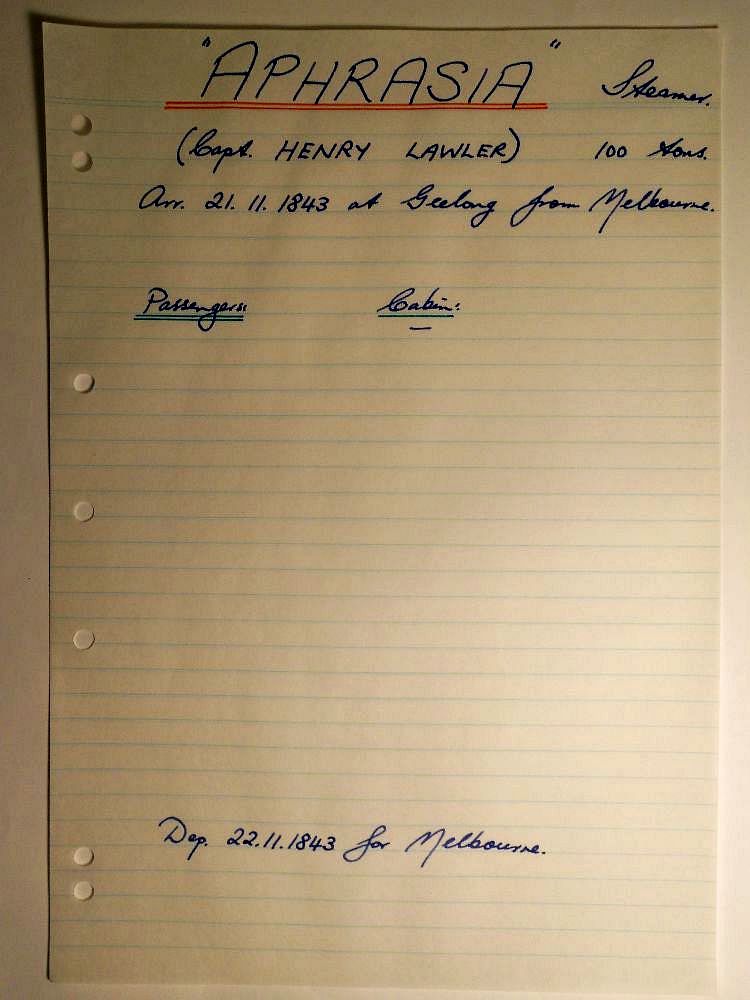 "APHRASIA" Steamer.
(Capt. HENRY LAWLER) 100 tons.
Arr. 21. 11. 1843 at Geelong from Melbourne.
Passengers: Cabin:
—
Dep. 22.11.1843 for Melbourne.